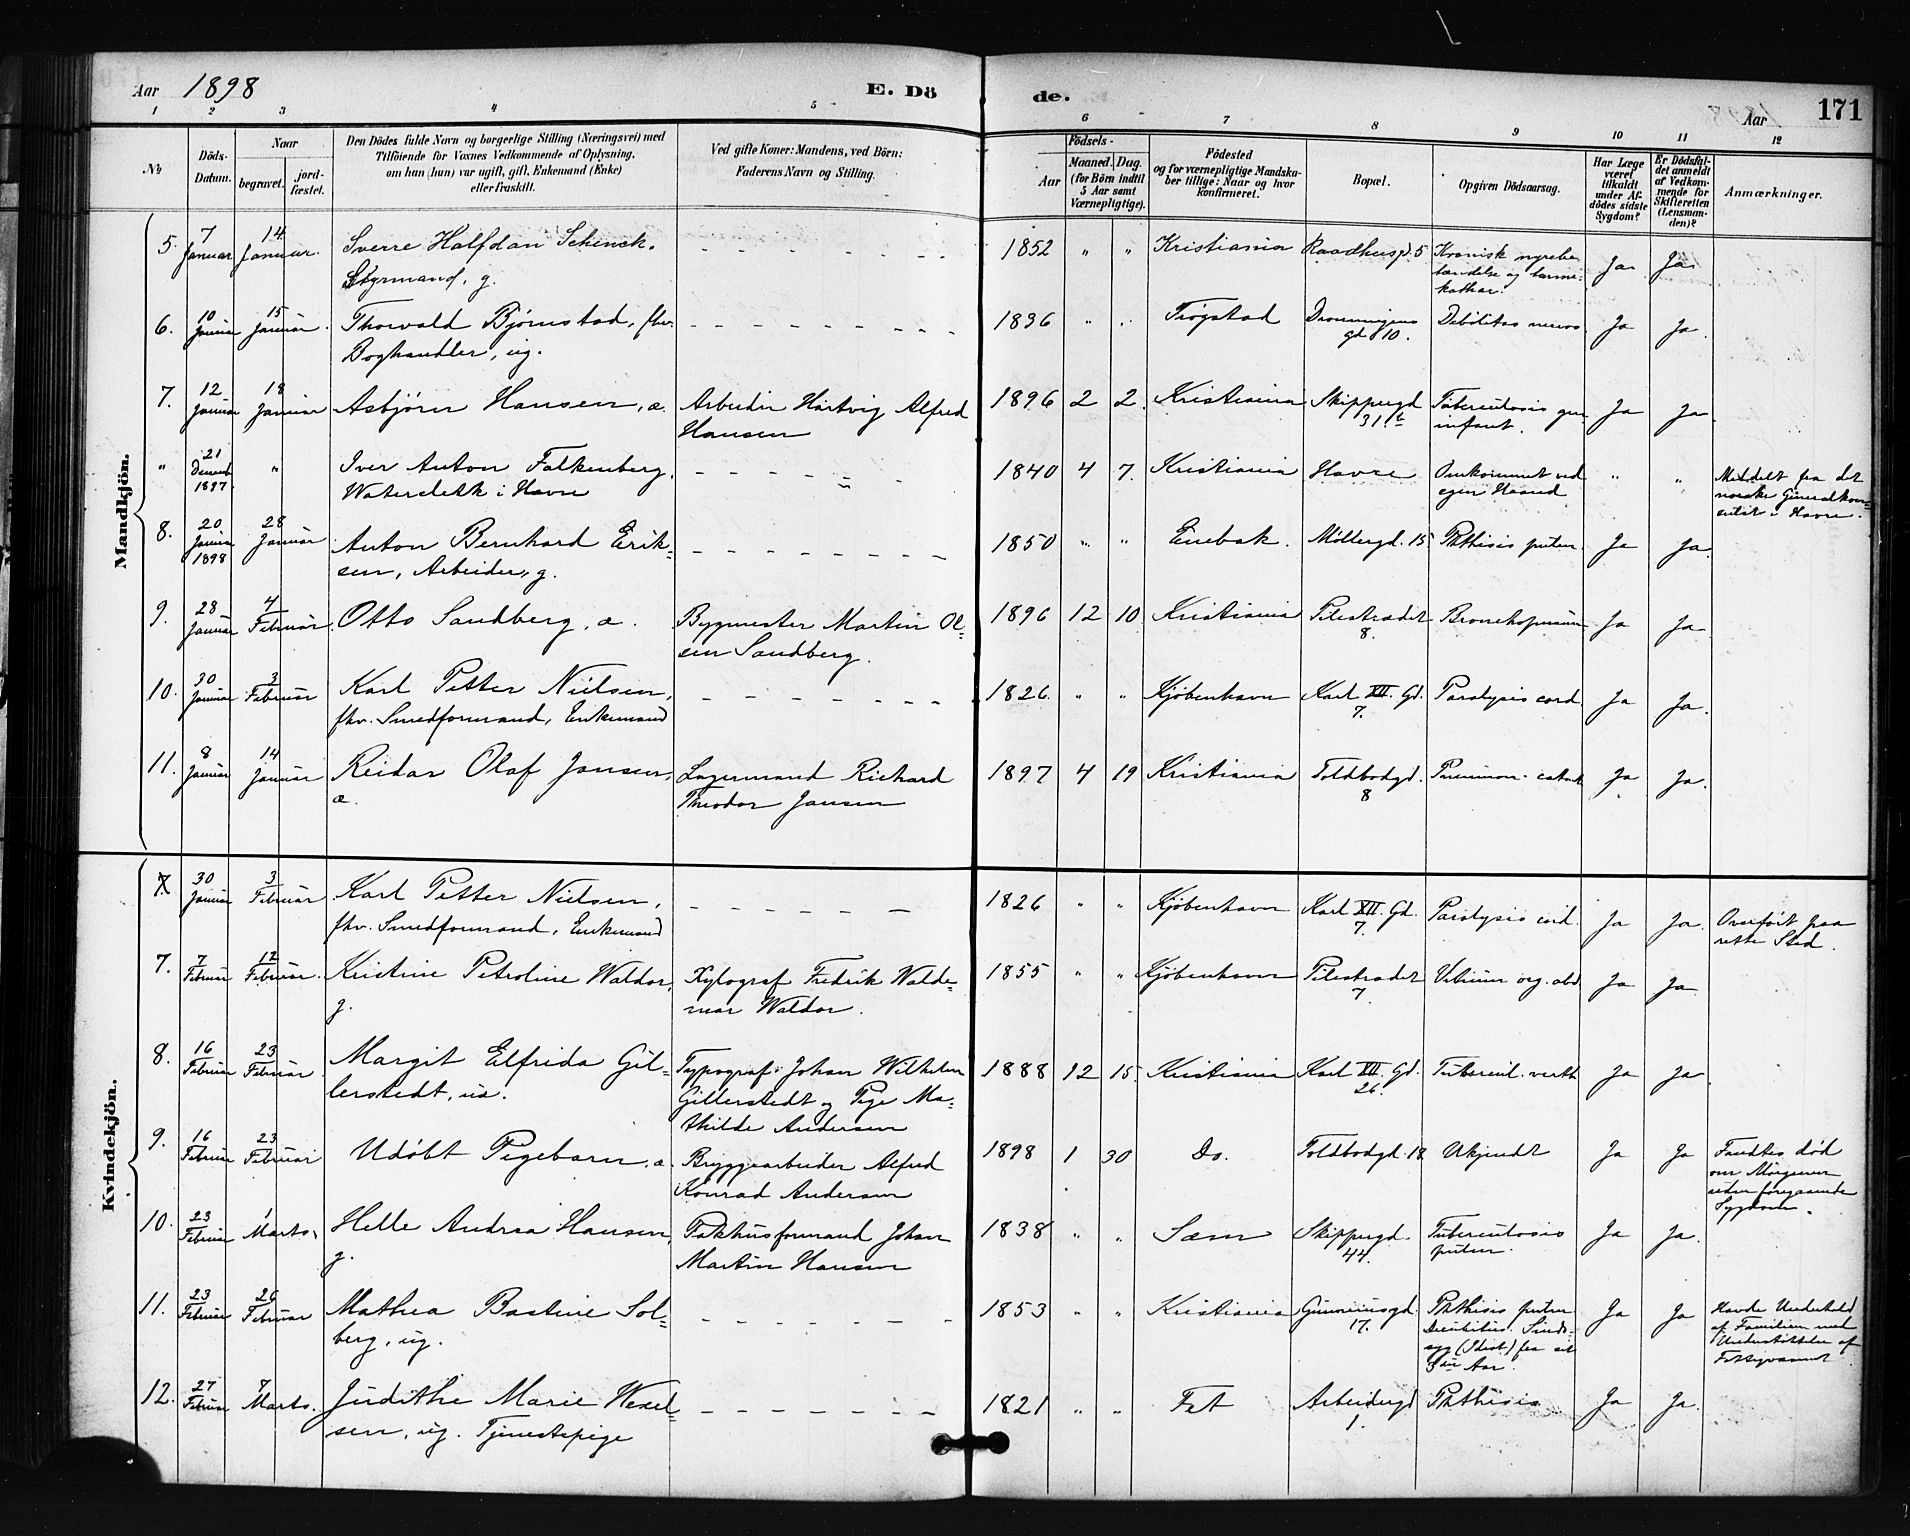 Aar 1898
E. Dö
de.
Aar 171
1 2 3 4 5 6 7 8 9 10 11 12
No
Döds-
Datum.
Naar
begravet.
jord-
fæstet.
Den Dödes fulde Navn og borgerlige Stilling (Næringsvei) med
Tilföiende for Voxnes Vedkommende af Oplysning,
om han (hun) var ugift, gift, Enkemand (Enke)
eller fraskilt.
Ved gifte Koner: Mandens, ved Börn:
Faderens Navn og Stilling.
Födsels-
Aar
Maaned. Dag.
(for Börn indtil
5 Aar samt
Værnepligtige).
Födested
og for værnepligtige Mandska-
ber tillige: Naar og hvor
konfirmeret.
Bopæl.
Opgiven Dödsaarsag.
Har Læge
været
tilkaldt
under Af-
dödes sidste
Sygdom?
Er Dödsfal-
det anmeldt
af Vedkom-
mende for
Skifteretten
(Lensman-
den)?
Anmærkninger.
Mandkjön.
5. 7 Januar 14 Januar. Sverre Halfdan Schenck.
Styrmand, g.
1852 " " Kristiania Raadhusgd. 5 Kronisk nyrebe-
tændelse og tarm-
kathar. Ja Ja
6. 10 Januar 15 Januar. Thorvald Bjørnstad, fhv.
Boghandler, ug.
1836 " " Trøgstad Dronningens
gd 10. Debilitas nervos Ja Ja.
7. 12 Januar 18 Januar Asbjörn Hansen, æ. Arbeider Hartvig Alfred
Hansen
1896 2 2. Kristiania Skippergd
31 b Tuberculosis
infant. Ja Ja
" 21 Decemb 1897. " Iver Anton Falkenberg.
Waterclerk i Havre
1840 4 7. Kristiania Havre Omkommet ved
egen Haand " " Meddelt fra det
norske Generalkon-
sulat i Havre.
8. 20 Januar 1898 28 Januar Anton Bernhard Erik-
sen, Arbeider, g.
1850 " " Enebak. Møllergd. 15 Phthisis pulm. Ja Ja.
9. 28 Januar 4 Februar Otto Sandberg, æ. Bygmester Martin Ol-
sen Sandberg.
1896 12 10. Kristiania Pilestrædet
8. Bronchopneum Ja Ja.
10. 30 Januar 3 Februar Karl Petter Nielsen,
fhv. Smedformand, Enkemand
1826. " " Kjöbenhavn Karl XII. Gd.
7. Paralysis cord Ja Ja.
11. 8 Januar 14 Januar Reidar Olaf Jansen,
æ. Lagermand Richard
Theodor Jansen
1897 4 19 Kristiania Toldbodgd.
8 Pneumon. catarh Ja Ja.
Kvindekjön.
7. 30 Januar 3 Februar Karl Petter Nielsen,
fhv. Smedformand, Enkemand
1826 " " Kjöbenhavn Karl XII. Gd.
7. Paralysis cord. Ja Ja. Overført paa
rette Sted.
7. 7 Februar 12 Februar. Kristine Petroline Waldor,
g. Xylograf Fredrik Walde-
mar Waldor.
1855 " " Kjöbenhavn Pilestrædet
7. Vitium org. abd Ja Ja
8. 16 Februar 23 Februar. Margit Elfrida Gil-
lerstedt, uæ. Typograf Johan Wilhelm
Gillerstedt og Pige Ma-
thilde Andersen
1888 12 15. Kristiania Karl XII. Gd.
26. Tubercul. verteb Ja Ja.
9. 16 Februar 23 Februar Udöbt Pigebarn, æ. Bryggearbeider Alfred
Konrad Andersen
1898 1 30 Do. Toldbodgd. 18 Ukjendt Ja Ja Fandtes död
om Morgenen
uden foregaaende
Sygdom.
10. 23 Februar 1 Marts. Helle Andrea Hansen,
g. Pakhusformand Johan
Martin Hansen
1838 " " Sæm Skippergd.
44. Tuberculosis
pulm. Ja Ja.
11. 23 Februar 26 Februar Mathea Bastine Sol-
berg, ug.
1853 " " Kristiania Grænsegd.
17. Phthisis pulm
Decubitus. Sinds-
syg (Idiot) fra sit
3die Aar. Ja Ja Havde Underhold
af Familien med
Understøttelse af
Fattigvæsenet
12. 27 Februar 7 Marts. Judithe Marie Wexel-
sen, ug. Tjenestepige
1821 " " Fet Arbeidergd
1. Phthisis Ja Ja.